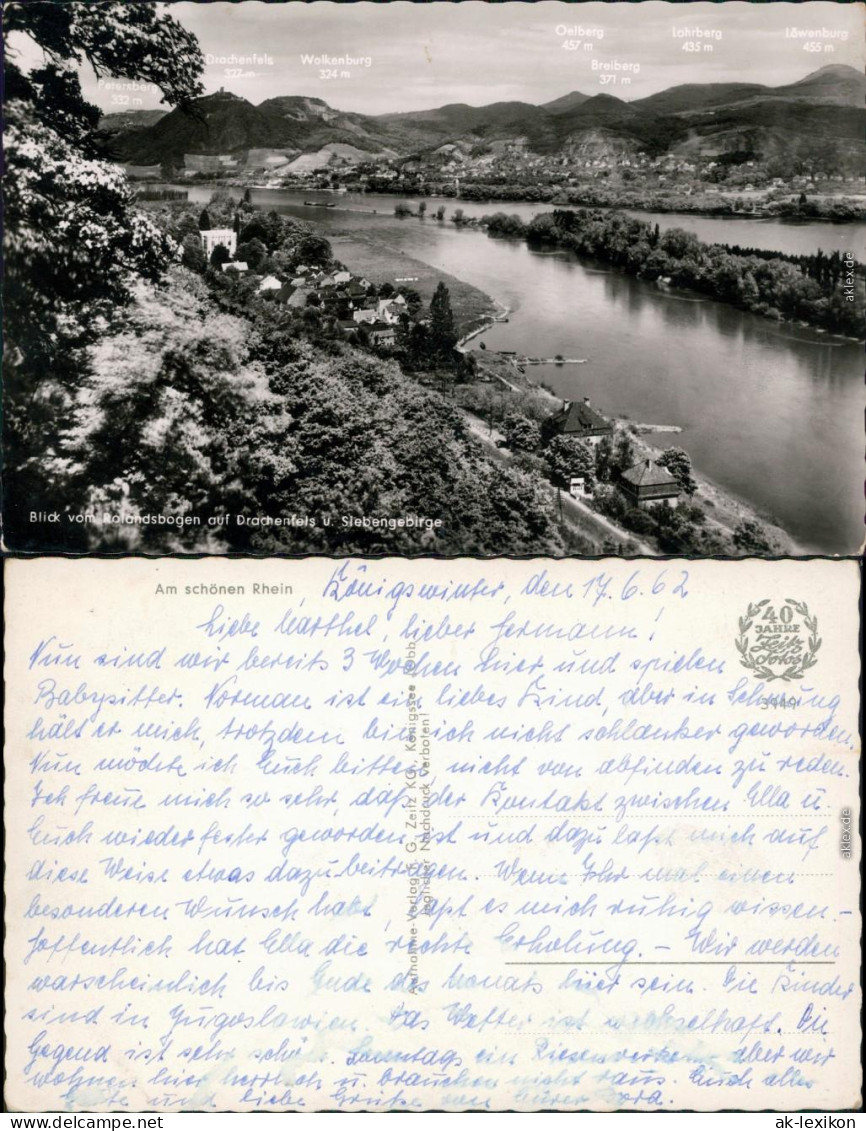 Oelberg
457 m
Lohrberg
435 m
Löwenburg
455 m
Drachenfels
327 m
Wolkenburg
324 m
Breiberg
371 m
Petersberg
332 m
aklex.de
Blick vom Rolandsbogen auf Drachenfels u. Siebengebirge
Am schönen Rhein
Königswinter, den 17.6.62
40
JAHRE
Zeitz
Fotos
Liebe Marthel, lieber Hermann!
Nun sind wir bereits 3 Wochen hier und spielen
Babysitter. Norman ist ein liebes Kind, aber in Schwung
hält er mich, trotzdem bin ich nicht schlanker geworden.
Nun möchte ich Euch bitten, nicht von abfinden zu reden.
Ich freue mich so sehr, daß der Kontakt zwischen Ella u.
Euch wieder fester geworden ist und dazu laßt mich auf
diese Weise etwas dazu beitragen. Wenn Ihr mal einen
besonderen Wunsch habt, laßt es mich ruhig wissen. -
Hoffentlich hat Ella die rechte Erholung. - Wir werden
warscheinlich bis Ende des Monats hier sein. Die Kinder
sind in Jugoslawien. Das Wetter ist wechselhaft. Die
Gegend ist sehr schön. Sonntags ein Riesenverkehr aber wir
wohnen hier herrlich u. brauchen nicht raus. Euch alles
Gute und liebe Grüße von Eurer
Aufnahme u. Verlag: G. Zeitz KG., Königssee
Jeglicher Nachdruck verboten!
aklex.de
www.ak-lexikon.de
ak-lexikon